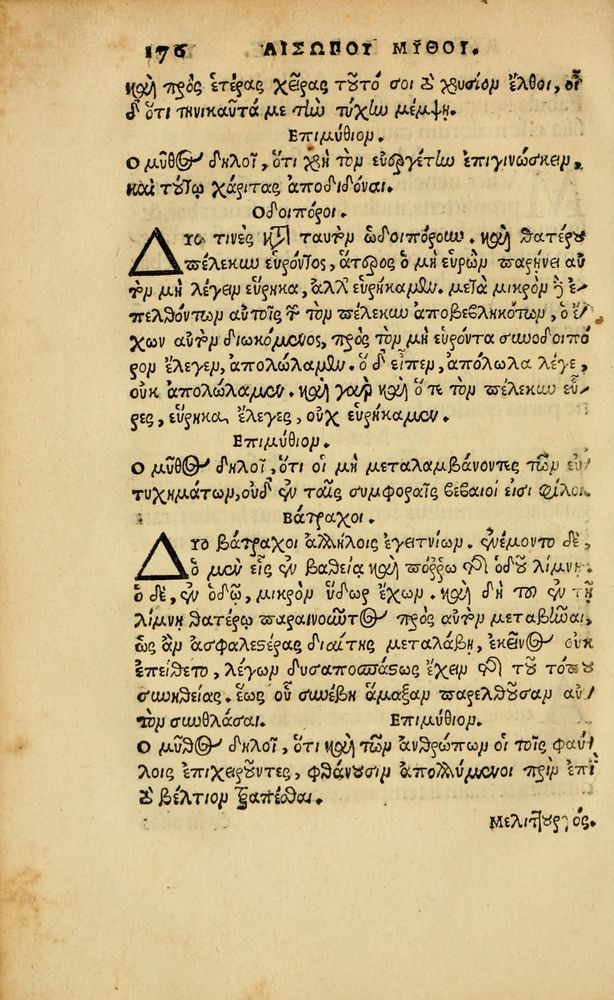 176 ΑΙΣΩΠΟΥ ΜΥΘΟΙ.
καὶ πρὸς ἑτέρας χεῖρας τοῦτό σοι τὸ χρυσίον ἔλθοι, οἶ
δ' ὅτι τηνικαῦτά με τὴν τύχην μέμψῃ.
Ἐπιμύθιον.
Ο μῦθος δηλοῖ, ὅτι χρὴ τὸν εὐεργέτην ἐπιγινώσκειν,
καὶ τούτῳ χάριτας ἀποδιδόναι.
Ὁδοιπόροι.
ΔΥο τινὲς κατὰ ταυτὸν ὡδοιπόρουν. καὶ θατέρου
πέλεκυν εὑρόντος, ἅτερος ὁ μὴ εὑρὼν παρῄνει αὐ
τὸν μὴ λέγειν εὕρηκα, ἀλλ' εὑρήκαμεν. μετὰ μικρὸν δὲ ἐ-
πελθόντων αὐτοῖς τῶν τὸν πέλεκυν ἀποβεβληκότων, ὁ ἔ
χων αὐτὸν διωκόμενος, πρὸς τὸν μὴ εὑρόντα συνοδοιπό
ρον ἔλεγεν, ἀπολώλαμεν. ὁ δ' εἶπεν, ἀπόλωλα λέγε,
οὐκ ἀπολώλαμεν. καὶ γὰρ καὶ ὅτε τὸν πέλεκυν εὗ-
ρες, εὕρηκα ἔλεγες, οὐχ εὑρήκαμεν.
Ἐπιμύθιον.
Ο μῦθος δηλοῖ, ὅτι οἱ μὴ μεταλαμβάνοντες τῶν εὐ
τυχημάτων, οὐδ' ἐν ταῖς συμφοραῖς βέβαιοί εἰσι φίλοι.
Βάτραχοι.
ΔΥο βάτραχοι ἀλλήλοις ἐγειτνίων. ἐνέμοντο δὲ,
ὁ μὲν εἷς ἐν βαθείᾳ καὶ πόῤῥω τῆς ὁδοῦ λίμνῃ.
ὁ δὲ, ἐν ὁδῷ, μικρὸν ὕδωρ ἔχων. καὶ δὴ τοῦ ἐν τῇ
λίμνῃ θατέρῳ παραινοῦντος πρὸς αὐτὸν μεταβῆναι,
ὡς ἂν ἀσφαλεστέρας διαίτης μεταλάβῃ, ἐκεῖνος οὐκ
ἐπείθετο, λέγων δυσαποσπάστως ἔχειν τῆς τοῦ τόπου
συνηθείας. ἕως οὗ συνέβη ἅμαξαν παρελθοῦσαν αὐ
τὸν συνθλάσαι. Ἐπιμύθιον.
Ο μῦθος δηλοῖ, ὅτι καὶ τῶν ἀνθρώπων οἱ τοῖς φαύ
λοις ἐπιχειροῦντες, φθάνουσιν ἀπολλύμενοι πρὶν ἐπὶ
τὸ βέλτιον τραπέσθαι.
Μελιτουργός.